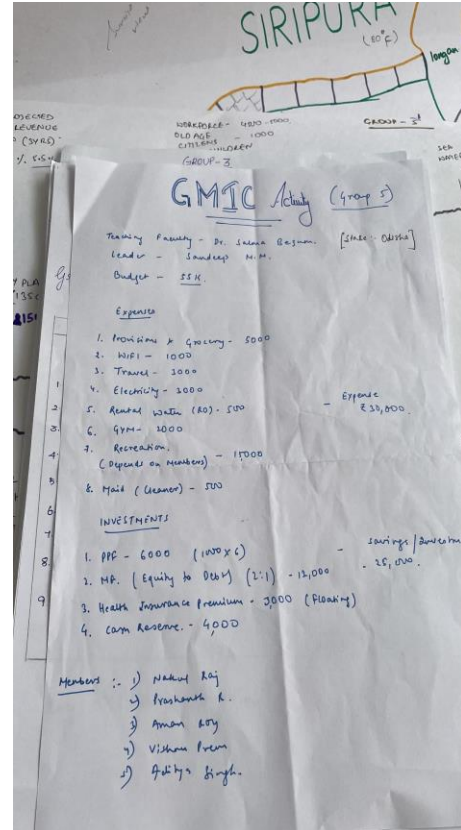 SIRIPURA
(80°F)
longan
WORKFORCE - 4000-1000
OLD AGE - 1000
CITIZENS
CHILDREN
GROUP - 3
GROUP - 3
REVENUE
(5YRS) -
SEA
GMIC Activity (Group 5)
Teaching Faculty - Dr. Salma Begum. [State :- Odisha]
Leader - Sandeep M.M.
Budget - 55K.
Expenses
1. Provisions & Grocery - 5000
2. WiFi - 1000
3. Travel - 3000
4. Electricity - 3000
5. Rental Water (RO) - 500
- Expense
₹ 30,000.
6. GYM - 2000
7. Recreation.
(Depends on Members) - 15000
8. Maid (Cleaner) - 500
INVESTMENTS
1. PPF - 6000 (1000 x 6)
- Savings/Investm
- 25,000.
2. MF. (Equity to Debt) (2:1) - 12,000
3. Health Insurance Premium - 3,000 (Floating)
4. Cash Reserve. - 4,000
Members :- 1) Nakul Raj
2) Prashanth R.
3) Aman Roy
4) Vishnu Prem
5) Aditya Singh.